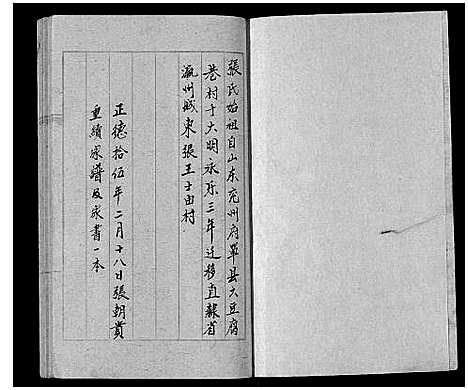 張氏始祖自山东兖州府單县大豆腐
巷村于大明永乐三年迁移直隸省
瀛州城東張王士由村
正德拾伍年二月十八日張朝貴
重續家譜及家書一本